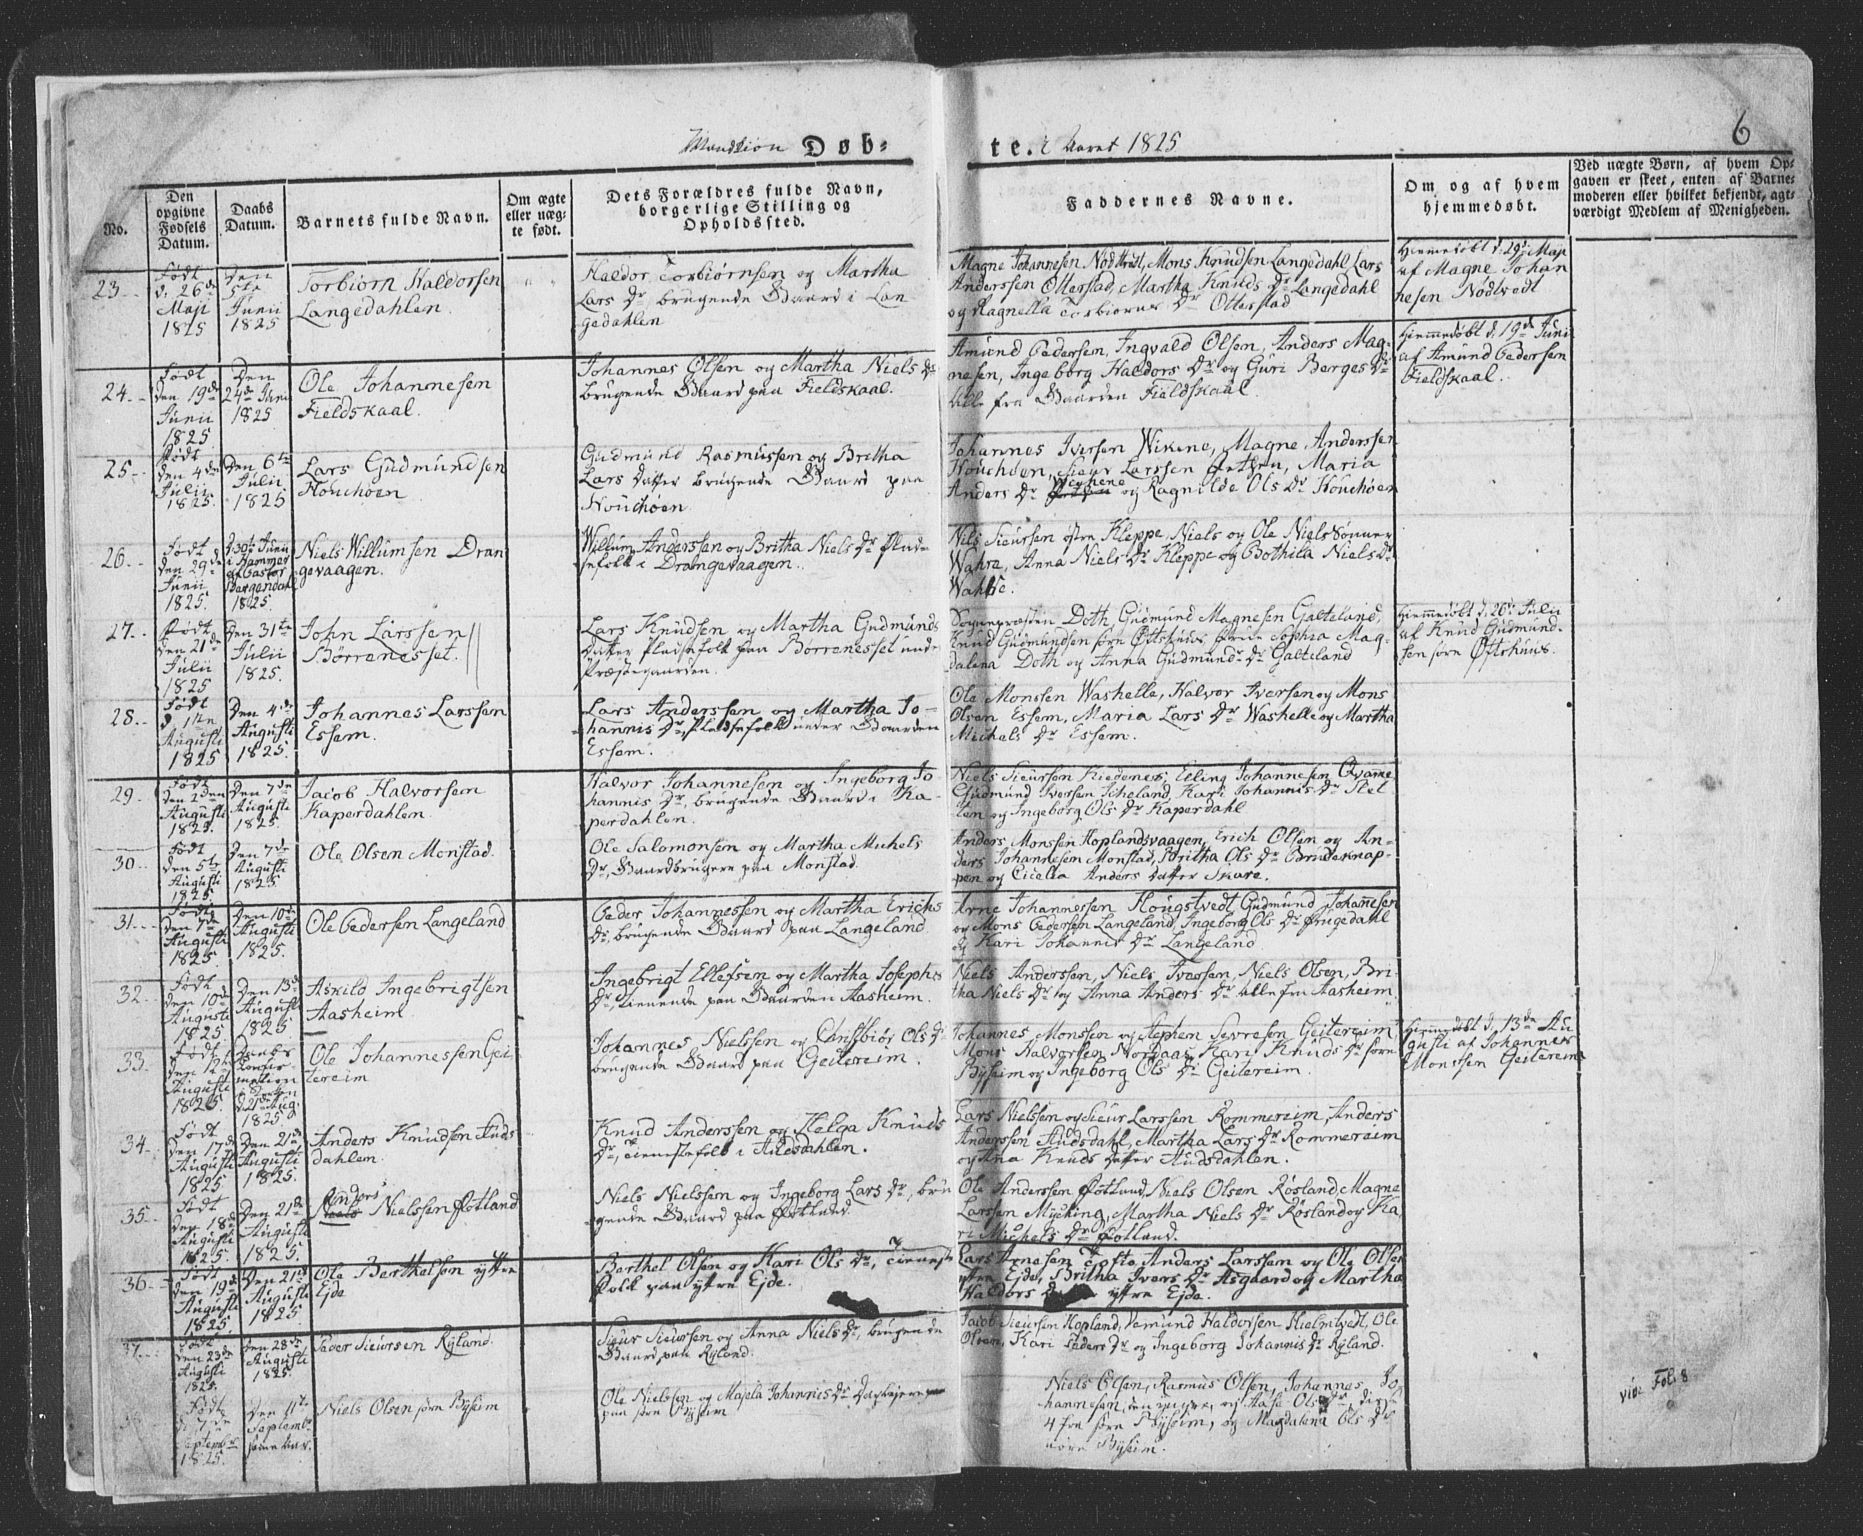 Mandkiøn Døb-
te. i Aaret 1825
6
No.
Den
opgivne
Fødsels
Datum.
Daabs
Datum.
Barnets fulde Navn.
Om ægte
eller uæg-
te født.
Dets Forældres fulde Navn,
borgerlige Stilling og
Opholdssted.
Faddernes Navne.
Om og af hvem
hjemmedøbt.
Ved uægte Børn, af hvem Op-
gaven er skeet, enten af Barne-
moderen eller hvilket bekjendt, agt-
værdigt Medlem af Menigheden.
23
Født
d. 26de
Maji
1825
Den
5te
Junii
1825
Torbiørn Haldorsen
Langedahlen
Haldor Torbiørnsen og Martha
Lars Dr brugende Gaard i Lan
gedahlen
Magne Johannesen Nødtvedt, Mons Knudsen Langedahl Lars
Anderssen Otterstad, Martha Knuds Dr Langedahl
og Ragnella Torbiørns Dr Otterstad
Hiemmedøbt d. 29de Maji
af Magne Johan
nesen Nødtvedt
24
Født
Den 19de
Junii
1825
Den
24de Juni
1825
Ole Johannesen
Fieldskaal.
Johannes Olsen og Martha Niels Dr
brugende Gaard paa Fieldskaal.
Amund Pedersen, Ingvald Olsen, Anders Mag-
nesen, Ingeborg Haldors Dr og Guri Børges Dr
alle fra Gaarden Fieldskaal.
Hiemmedøbt d. 19de Juni
af Amund Pedersen
Fieldskaal.
25
Født
den 4de
Julii
1825.
Den 6te
Julii
1825
Lars Gudmundsen
Houchøen
Gudmund Rasmussen og Britha
Lars Datter brugende Gaard paa
Houchøen
Johannes Iversen Wikene, Magne Anderssen
Houchøen, Sieur Larssen, Maria
Anders Dr og Ragnilde Ols Dr Houchøen
26
Født
den 29de
Junii
1825.
d. 30te Junii
i Hammer
af Pastor
Bergendahl
1825.
Niels Willumsen Dran
gevaagen.
Willum Anderssen og Britha Niels Dr Plad-
sefolk i Drangevaagen.
Nils Sieursen østre Kleppe, Niels og Ole Niels Sønner
Wahre, Anna Niels Dr Kleppe og Bothila Niels Dr
Wahre.
27
Født
Den 21de
Julii
1825
Den 31te
Julii
1825.
John Larssen
Børrenesset.
Lars Knudsen og Martha Gudmunds
Datter Pladsefolk paa Børrenesset under
Præsegaarden.
Sognepræsten Doth, Gudmund Magnesen Galteland,
Knud Gudmundsen søre Øftshuus, Sophia Mag-
dalena Doth og Anna Gudmunds Dr Galteland
Hiemmedøbt d. 26de Julii
af Knud Gudmund-
sen søre Øftshuus.
28
Født
d. 1ste
Augusti
1825
Den 4de
Augusti
1825.
Johannes Larssen
Essem.
Lars Anderssen og Martha Jo-
hannis Dr, Pladsefolk under Gaarden
Essem.
Ole Monssen Washelle, Halvor Iversen og Mons
Olsen Essem, Maria Lars Dr Washelle og Martha
Michels Dr Essem.
29
Født
den 2den
Augusti
1825.
Den 7de
Augusti
1825.
Jacob Halvorsen
Kaperdahlen.
Halvor Johannesen og Ingeborg Jo
hannis Dr, brugende Gaard i Ka-
perdahlen.
Niels Sieursen Kiedenes, Elling Johannesen Qvame
Gudmund Iversen Scheland, Kari Johannis Dr Slet
ten og Ingeborg Ols Dr Kaperdahl
30
Født
Den 5te
Augusti
1825.
Den 7de
Augusti
1825
Ole Olsen Monstad.
Ole Salomonsen og Martha Michels
Dr, Gaardbrugere paa Monstad.
Anders Monssen Hoplandsvaagen, Erich Olsen og An-
ders Johannesen Monstad, Britha Ols Dr Brudeknap-
pen og Cicella Anders Datter Skare.
31
Født
Den 7de
Augusti
1825.
Den 10de
Augusti
1825.
Ole Pedersen Langeland
Peder Johannessen og Martha Erichs
Dr, brugende Gaard paa Langeland.
Arne Johannessen Hougstvedt, Gudmund Johannesen
og Mons Pedersen Langeland, Ingeborg Ols Dr
og Kari Johannis Dr Langeland.
32
Født
Den 10de
Augusti
1825
Den 13de
Augusti
1825
Askild Ingebrigtsen
Aasheim
Ingebrigt Ellefsen og Martha Josephs
Dr, tienende paa Gaarden Aasheim.
Niels Anderssen, Niels Iverssen, Niels Olsen, Bri-
tha Niels Dr og Anna Anders Dr alle fra Aasheim
33
Født
Den 12te
Augusti
1825.
Daabs
Confir-
mation
d 21de Aug.
1825.
Ole Johannessen Gei-
tereim
Johannes Nielssen og Christbiør Ols Dr
brugende Gaard paa Geitereim
Johannes Monssen og Stephen Sevresen Geitereim
Mons Halvorsen Nordaas, Kari Knuds Dr søre
Bysheim og Ingeborg Ols Dr Geitereim.
Hiemmedøbt d. 13de Au
gusti af Johannes
Monssen Geitereim
34
Født
Den 17de
Augusti
1825
Den 21de
Augusti
1825.
Anders Knudsen Auds
dahlen.
Knud Anderssen og Helga Knuds
Dr, Tienestefolk i Audsdahlen.
Lars Nielssen og Sieur Larssen Rommereim, Anders
Anderssen Audsdahl, Martha Lars Dr Rommereim
og Ana Knuds Datter Audsdahlen.
35
Født
Den 18de
Augusti
1825.
Den 21de
Augusti
1825.
Anders
Niels Nielssen Fotland
Niels Nielssen og Ingeborg Lars Dr, bru
gende Gaard paa Fotland
Ole Anderssen Fotland, Niels Olsen Røsland, Magne
Larssen Mycking, Martha Niels Dr Røsland og Ka
ri Michels Dr Fotland.
36
Født
Den 19de
Augusti
1825.
Den 21de
Augusti
1825
Ole Berthelsen yttre
Ejde
Berthel Olsen og Kari Ols Dr, Tieneste
folk paa yttre Ejde.
Lars Arnesen Tofte, Anders Larssen og Ole Olsen
yttre Ejde, Britha Ivers Dr Asgaard og Martha
Haldors yttre Ejde.
37
Født
Den 23de
Augusti
1825.
Den 28de
Augusti
1825.
Peder Sieursen Ryland.
Sieur Sieurssen og Anna Niels Dr, brugende
Gaard paa Ryland.
Jacob Sieursen Hopland, Vemund Haldorsen Hielmtvedt, Ole
Olsen, Kari Peders Dr og Ingeborg Johannis Dr Ryland.
38
Født
d. 7de
September
1825.
Den 11te
Septembr
samme Aar.
Niels Olsen søre Bysheim
Ole Nielssen og Majela Johannis Dr
paa søre Bysheim
Niels Olsen, Rasmus Olsen, Johannes Jo
hannesen, den yngre, og Aase Ols Dr disse
4 fra søre Bysheim, og Magdalena Ols Dr
nøre Bysheim.
vide Fol. 8